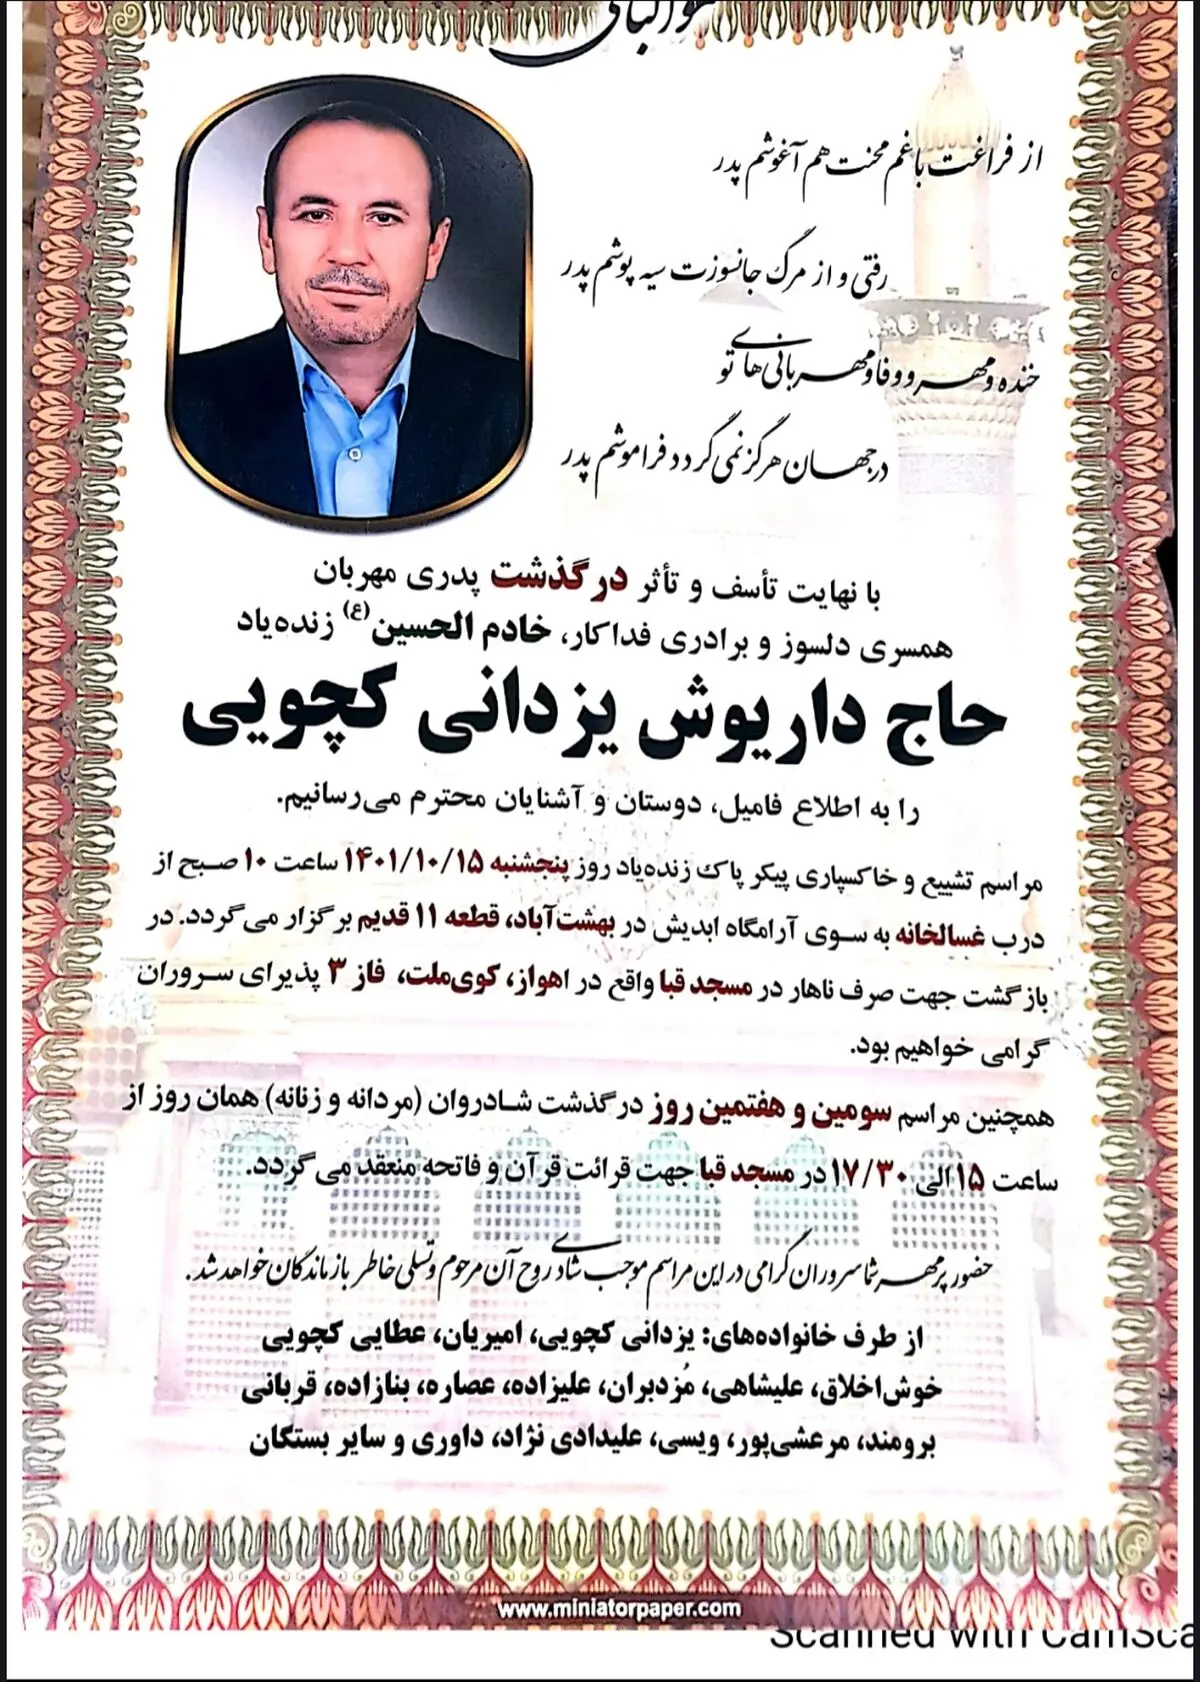 هوالباقی
از فراغت با غم محنت هم آغوشم پدر
رفتی و از مرگ جانسوزت سیه پوشم پدر
خنده و مهر و وفا و مهربانی های تو
در جهان هرگز نمی گردد فراموشم پدر
با نهایت تأسف و تأثر درگذشت پدری مهربان
همسری دلسوز و برادری فداکار، خادم الحسین (ع) زنده‌یاد
حاج داریوش یزدانی کچویی
را به اطلاع فامیل، دوستان و آشنایان محترم می‌رسانیم.
مراسم تشییع و خاکسپاری پیکر پاک زنده‌یاد روز پنجشنبه ۱۴۰۱/۱۰/۱۵ ساعت ۱۰ صبح از
درب غسالخانه به سوی آرامگاه ابدیش در بهشت‌آباد، قطعه ۱۱ قدیم برگزار می‌گردد. در
بازگشت جهت صرف ناهار در مسجد قبا واقع در اهواز، کوی‌ملت، فاز ۳ پذیرای سروران
گرامی خواهیم بود.
همچنین مراسم سومین و هفتمین روز درگذشت شادروان (مردانه و زنانه) همان روز از
ساعت ۱۵ الی ۱۷/۳۰ در مسجد قبا جهت قرائت قرآن و فاتحه منعقد می گردد.
حضور پرمهر شما سروران گرامی در این مراسم موجب شادی روح آن مرحوم و تسلی خاطر بازماندگان خواهد شد.
از طرف خانواده‌های: یزدانی کچویی، امیریان، عطایی کچویی
خوش‌اخلاق، علیشاهی، مُزدبران، علیزاده، عصاره، بنازاده، قربانی
برومند، مرعشی‌پور، ویسی، علیدادی نژاد، داوری و سایر بستگان
www.miniatorpaper.com
Scanned with CamSca